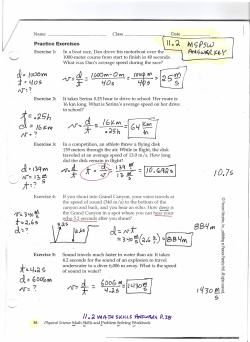 Name Class Date
11.2 MGPSW
ANSWER KEY
Practice Exercises
Exercise 1: In a boat race, Dan drives his motorboat over the
1000-meter course from start to finish in 40 seconds.
What was Dan's average speed during the race?
d = 1000m
t = 40s
v = ?
v = d/t = 1000m-0m/40s = 1000m/40s = 25 m/s
Exercise 2: It takes Serina 0.25 hour to drive to school. Her route is
16 km long. What is Serina's average speed on her drive
to school?
t = .25h
d = 16km
v = ?
v = d/t = 16km/.25h = 64 km/h
Exercise 3: In a competition, an athlete threw a flying disk
139 meters through the air. While in flight, the disk
traveled at an average speed of 13.0 m/s. How long
did the disk remain in flight?
d = 139m
v = 13 m/s
t = ?
v = d/t t = d/v = 139m/13 m/s = 10.692s
10.7s
Exercise 4: If you shout into Grand Canyon, your voice travels at
the speed of sound (340 m/s) to the bottom of the
canyon and back, and you hear an echo. How deep is
the Grand Canyon in a spot where you can hear your
echo 5.2 seconds after you shout?
v = 340 m/s
t = 2.6s
d = ?
d = vt
= 340 m/s (2.6s) = 884m
884m
Exercise 5: Sound travels much faster in water than air. It takes
4.2 seconds for the sound of an explosion to travel
underwater to a dive 6,006 m away. What is the speed
of sound in water?
t = 4.2s
d = 6006m
v = ?
v = d/t = 6006m/4.2s = 1430 m/s
1430 m/s
11.2 MATH SKILLS ANSWERS P.38
Physical Science Math Skills and Problem Solving Workbook